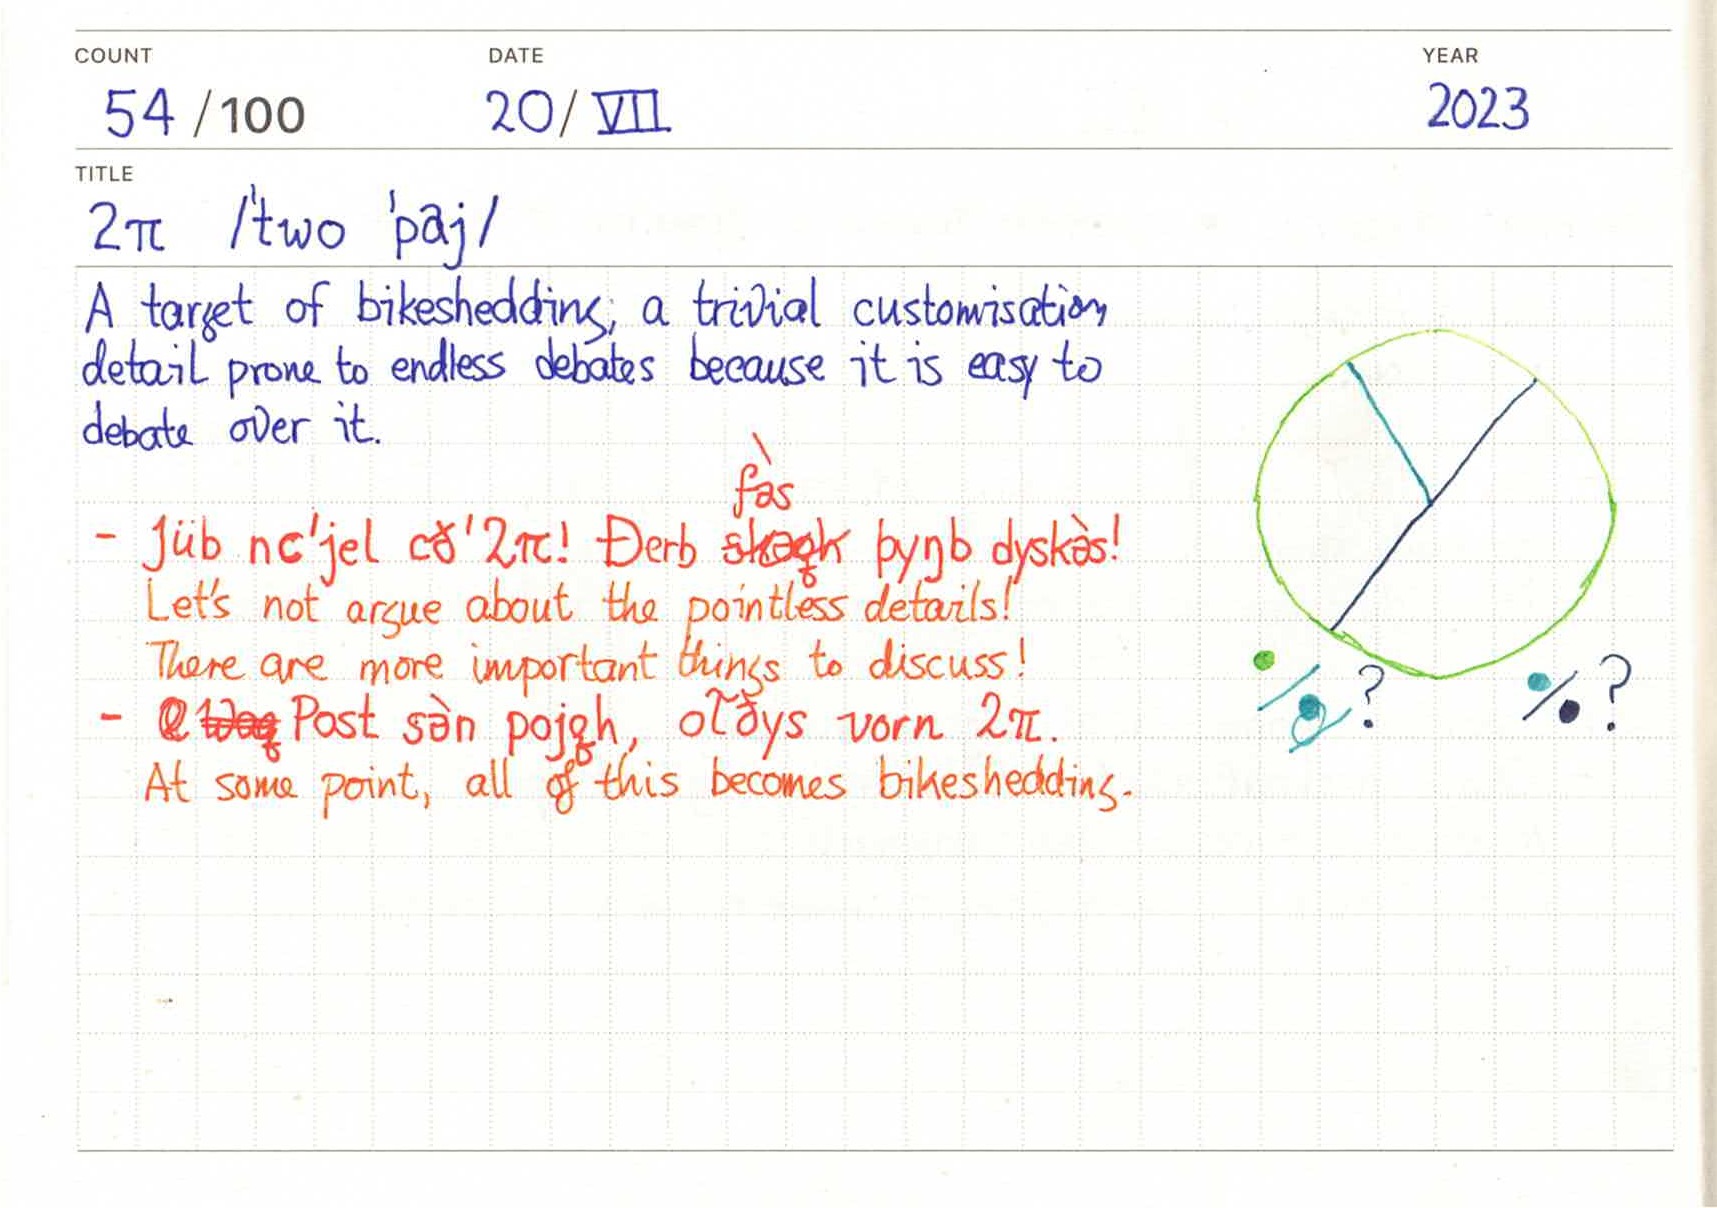 COUNT DATE YEAR
54 /100 20/VII 2023
TITLE
2π /ˈtwo ˈpaj/
A target of bikeshedding; a trivial customisation
detail prone to endless debates because it is easy to
debate over it.
fàs
- Jüb nc'jel cð'2π! Ðerb þyŋb dyskàs!
Let's not argue about the pointless details!
There are more important things to discuss!
- Post sàn 2π.
At some point, all of this becomes bikeshedding.
/ ? / ?